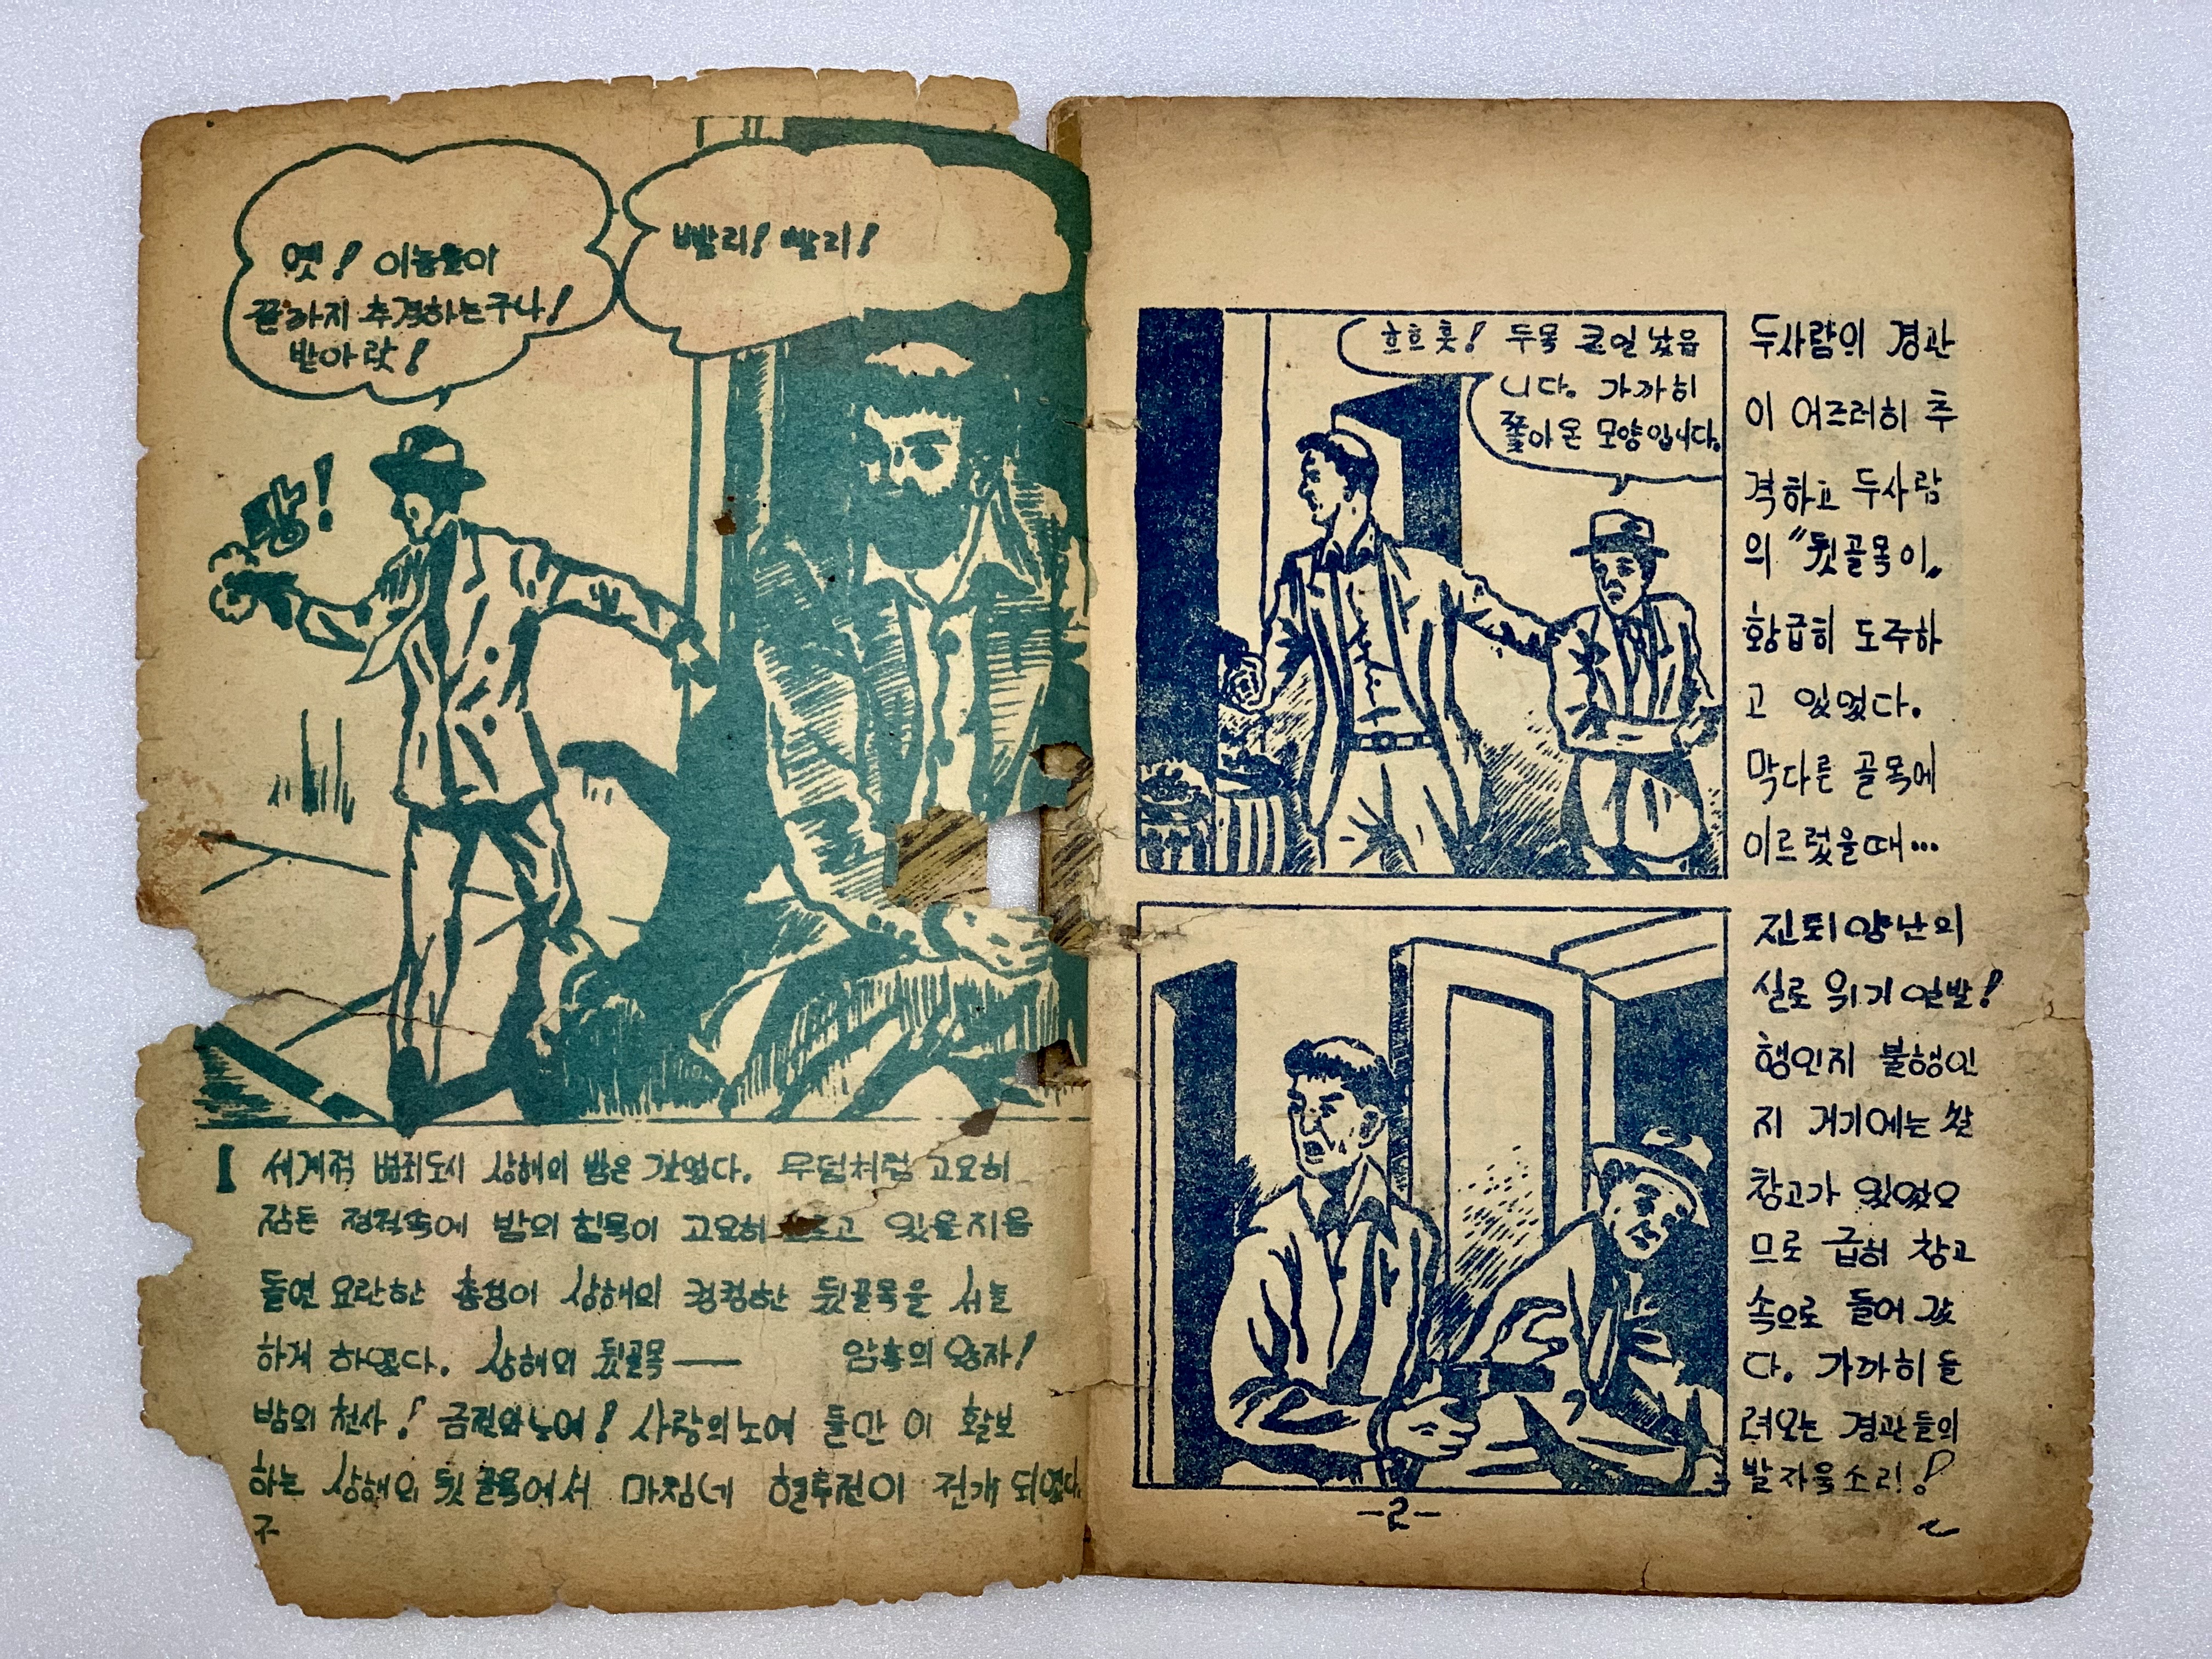 옛! 이놈들아
끝까지 추격하는구나!
받아랏!
빨리! 빨리!
쾅!
1 세계적 범죄도시 상해의 밤은 갚었다. 무덤처럼 고요히
잠든 정적속에 밤의 침묵이 고요히 흐르고 있을지음
돌연 요란한 총성이 상해의 컹컴한 뒷골목을 서늘
하게 하였다. 상해의 뒷골목 —— 암흑의 왕자!
밤의 천사! 금전의노예! 사랑의노예 들만 이 활보
하는 상해의 뒷골목에서 마침네 혈투전이 전개 되였다.
흐흐흣! 두목 큰일 났읍
니다. 가까히
쫓아온 모양입니다.
두사람의 경관
이 어즈러히 추
격하고 두사람
의 〃뒷골목이〃
황급히 도주하
고 있였다.
막다른 골목에
이르렀을때…
진퇴양난의
실로 위기일발!
행인지 불행인
지 거기에는 쌀
창고가 있였으
므로 급히 창고
속으로 들어갔
다. 가까히 들
려오는 경관들의
발자욱소리!
-2-